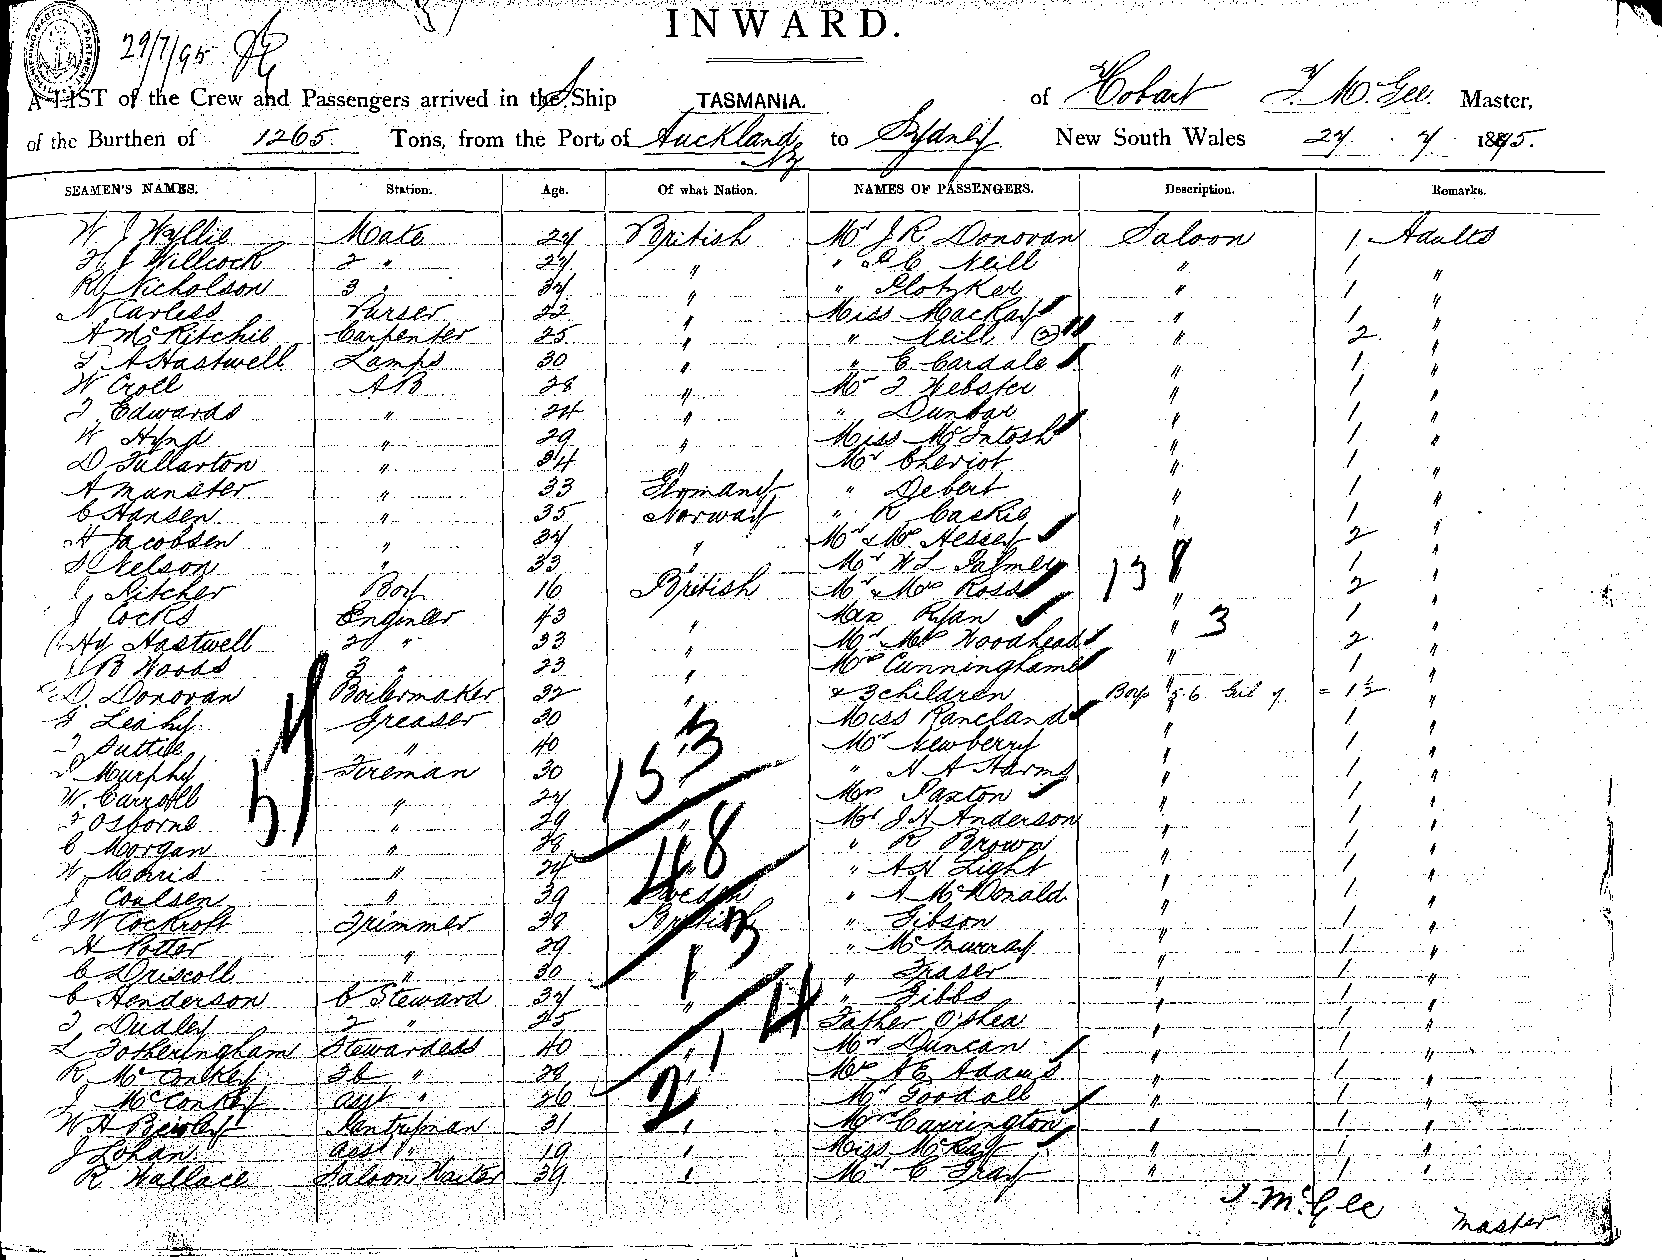 INWARD.
29/7/95
A LIST of the Crew and Passengers arrived in the S. Ship TASMANIA. of Hobart T. McGee. Master,
of the Burthen of 1265. Tons, from the Port of Auckland NZ to Sydney New South Wales 27 . 7 1895.
SEAMEN'S NAMES. Station. Age. Of what Nation. NAMES OF PASSENGERS. Description. Remarks.
W J Wyllie Mate 27 British Mr J R Donovan Saloon 1 Adults
H J Willcock 2 " 27 " " Neill " 1 "
R Nicholson 3 " 37 " " Plotzker " 1 "
N Carless Purser 22 " Miss MacKay " 1 "
A McRitchie Carpenter 25 " " Neill (2) " 2 "
A Hastwell Lamps 30 " " C Cardale " 1 "
W Croll AB 28 " Mr T Webster " 1 "
T Edwards " 24 " " Dunbar " 1 "
W Hynd " 29 " Miss McIntosh " 1 "
D Fullarton " 34 " Mr Cheriot " 1 "
A Munster " 33 Germany " Debert " 1 "
C Hansen " 35 Norway " R Caskie " 1 "
H Jacobsen " 37 " Mr & Mrs Hessey " 2 "
Nelson " 33 " Mr W L Palmer 138 1 "
J Pitcher Boy 16 British Mr & Mrs Ross " 2 "
J Cocks Engineer 43 " Ryan " 3 1 "
Hy Hastwell 2d " 33 " Mr Mrs Woodhead " 2 "
B Woods 3 " 23 " Mrs Cunninghame " 1 "
D. Donovan Boilermaker 32 " & 3 children Boys 5. 6 Girl 7 = 1½ "
Leahy Greaser 30 Miss Rancland " 1 "
T Tuttie " 40 Mr Newberry " 1 "
Murphy Fireman 30 " " H A Harms " 1 "
W. Carroll " 27 Mrs Paxton " 1 "
T Osborne " 29 " Mr J H Anderson " 1 "
C Morgan " 28 " R Brown " 1 "
W Morris " 24 " A H Light " 1 "
J Coulsen " 39 " A McDonald " 1 "
J W Cockroft Trimmer 38 British " Gibson " 1 "
H Potter " 29 " McMurray " 1 "
C Driscoll " 30 " " Fraser " 1 "
C Henderson C Steward 37 " " Gibbs " 1 "
T Dudley 2 " 25 Father O'Shea " 1 "
L Fotheringham Stewardess 40 " Mr Duncan " 1 "
R McConkey 2d " 28 " Adams " 1 "
J McConkey asst " 26 Mr Goodall " 1 "
W A Pantryman 31 " Mrs Carrington " 1 "
J Lohan asst " 19 " Miss McKay " 1 "
R Wallace Saloon Waiter 39 " Mr C Gray " 1 "
T McGee
Master